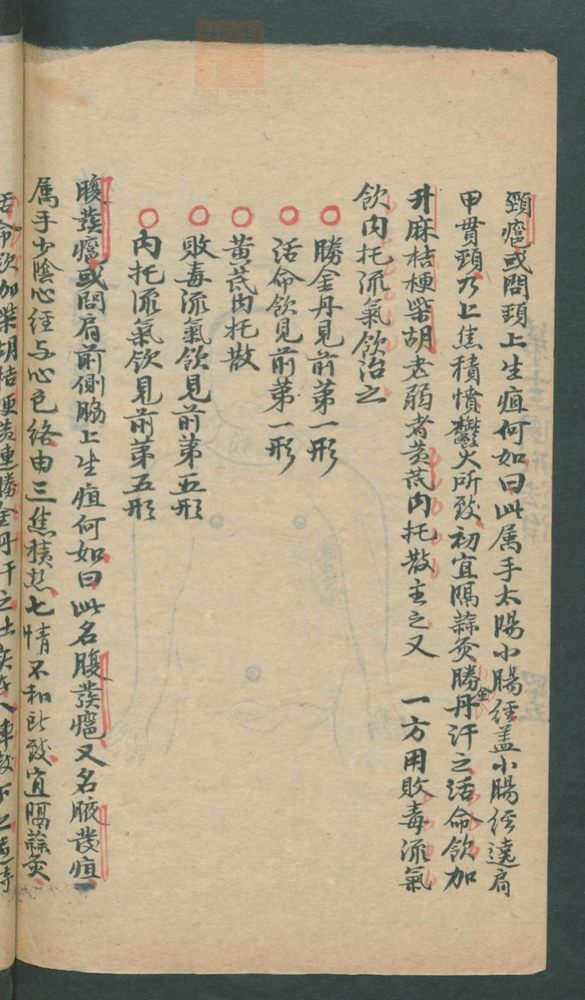 頸癰或問頸上生疽何如曰此属手太陽小腸經盖小腸經遶肩
甲貫頸乃上焦積憤鬱火所致初宜隔蒜灸勝金丹汗之活命飲加
升麻桔梗柴胡老弱者黃芪内托散主之又 一方用敗毒流氣
飲内托流氣飲治之
○勝金丹見前第一形
○活命飲見前第一形
○黃芪内托散
○敗毒流氣飲見前第五形
○内托流氣飲見前第五形
腹發癰或問肩前側脇上生疽何如曰此名腹發癰又名腋發疽
属手少陰心經与心包絡由三焦積热七情不和所致宜隔蒜灸
活命飲加柴胡桔更黄連勝金丹汗之